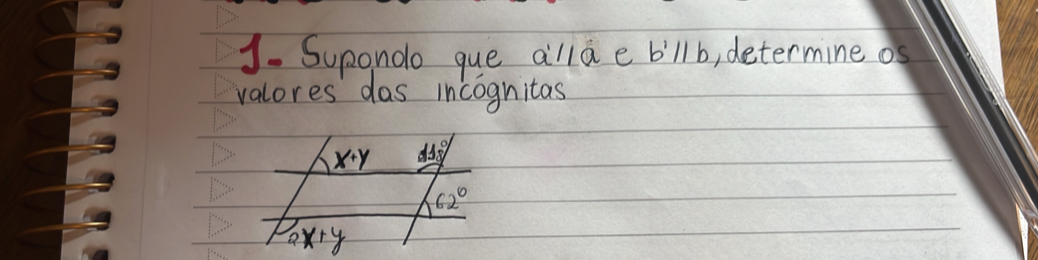 1- Supondo que a'//a e b'//b, determine os
valores das incógnitas
x+y 118°
62°
2x+y